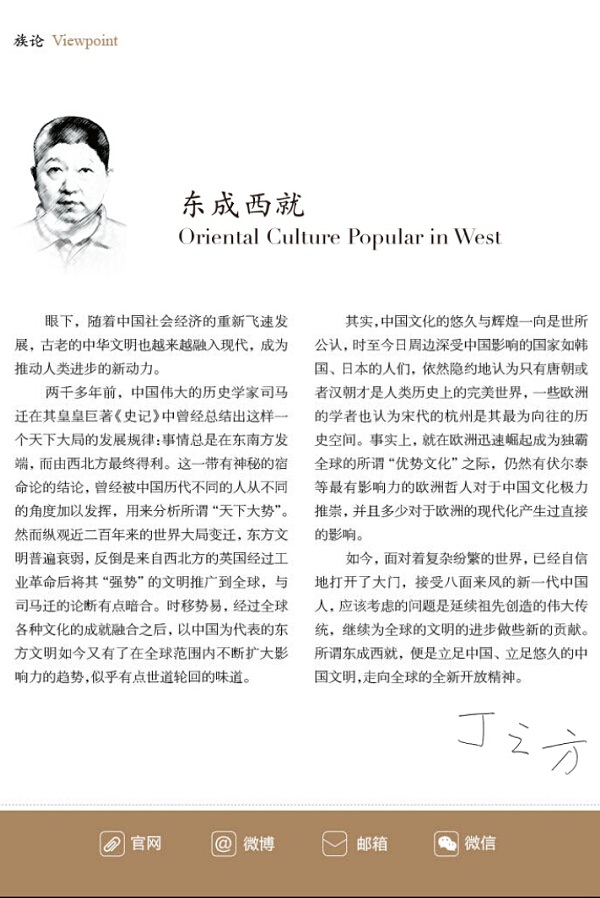 族论 Viewpoint
东成西就
Oriental Culture Popular in West
眼下，随着中国社会经济的重新飞速发
展，古老的中华文明也越来越融入现代，成为
推动人类进步的新动力。
两千多年前，中国伟大的历史学家司马
迁在其皇皇巨著《史记》中曾经总结出这样一
个天下大局的发展规律：事情总是在东南方发
端，而由西北方最终得利。这一带有神秘的宿
命论的结论，曾经被中国历代不同的人从不同
的角度加以发挥，用来分析所谓“天下大势”。
然而纵观近二百年来的世界大局变迁，东方文
明普遍衰弱，反倒是来自西北方的英国经过工
业革命后将其“强势”的文明推广到全球，与
司马迁的论断有点暗合。时移势易，经过全球
各种文化的成就融合之后，以中国为代表的东
方文明如今又有了在全球范围内不断扩大影
响力的趋势，似乎有点世道轮回的味道。
其实，中国文化的悠久与辉煌一向是世所
公认，时至今日周边深受中国影响的国家如韩
国、日本的人们，依然隐约地认为只有唐朝或
者汉朝才是人类历史上的完美世界，一些欧洲
的学者也认为宋代的杭州是其最为向往的历
史空间。事实上，就在欧洲迅速崛起成为独霸
全球的所谓“优势文化”之际，仍然有伏尔泰
等最有影响力的欧洲哲人对于中国文化极力
推崇，并且多少对于欧洲的现代化产生过直接
的影响。
如今，面对着复杂纷繁的世界，已经自信
地打开了大门，接受八面来风的新一代中国
人，应该考虑的问题是延续祖先创造的伟大传
统，继续为全球的文明的进步做些新的贡献。
所谓东成西就，便是立足中国、立足悠久的中
国文明，走向全球的全新开放精神。
丁之方
官网 微博 邮箱 微信